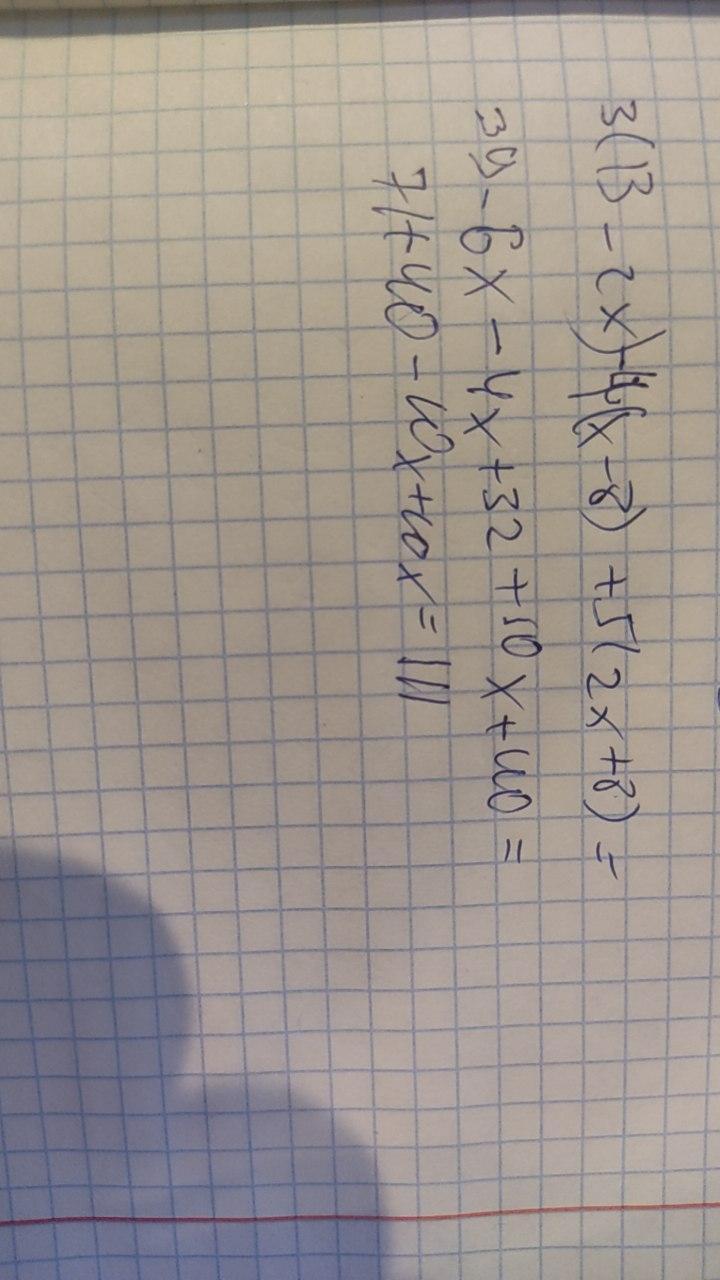 3(13 - 2x) - 4(x - 8) + 5(2x + 8) =
39 - 6x - 4x + 32 + 10x + 40 =
71 + 40 - 10x + 10x = 111